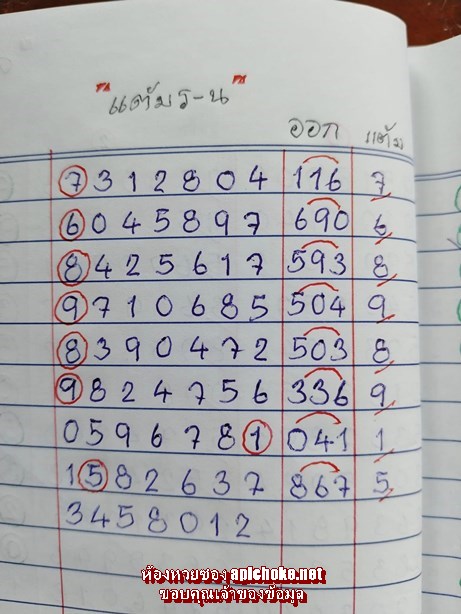 "แต้มร-น"
ออก แต้ม
7 3 1 2 8 0 4 116 7
6 0 4 5 8 9 7 690 6
8 4 2 5 6 1 7 593 8
9 7 1 0 6 8 5 504 9
8 3 9 0 4 7 2 503 8
9 8 2 4 7 5 6 336 9
0 5 9 6 7 8 1 041 1
1 5 8 2 6 3 7 867 5
3 4 5 8 0 1 2
ห้องหวยซอง apichoke.net
ขอบคุณเจ้าของข้อมูล